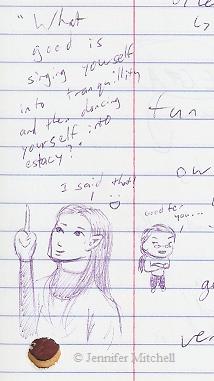 "What
good is
singing yourself
into tranquillity
and then dancing
yourself into
estacy?"
fun
I said that!
ow
Good for
you...
ver
© Jennifer Mitchell